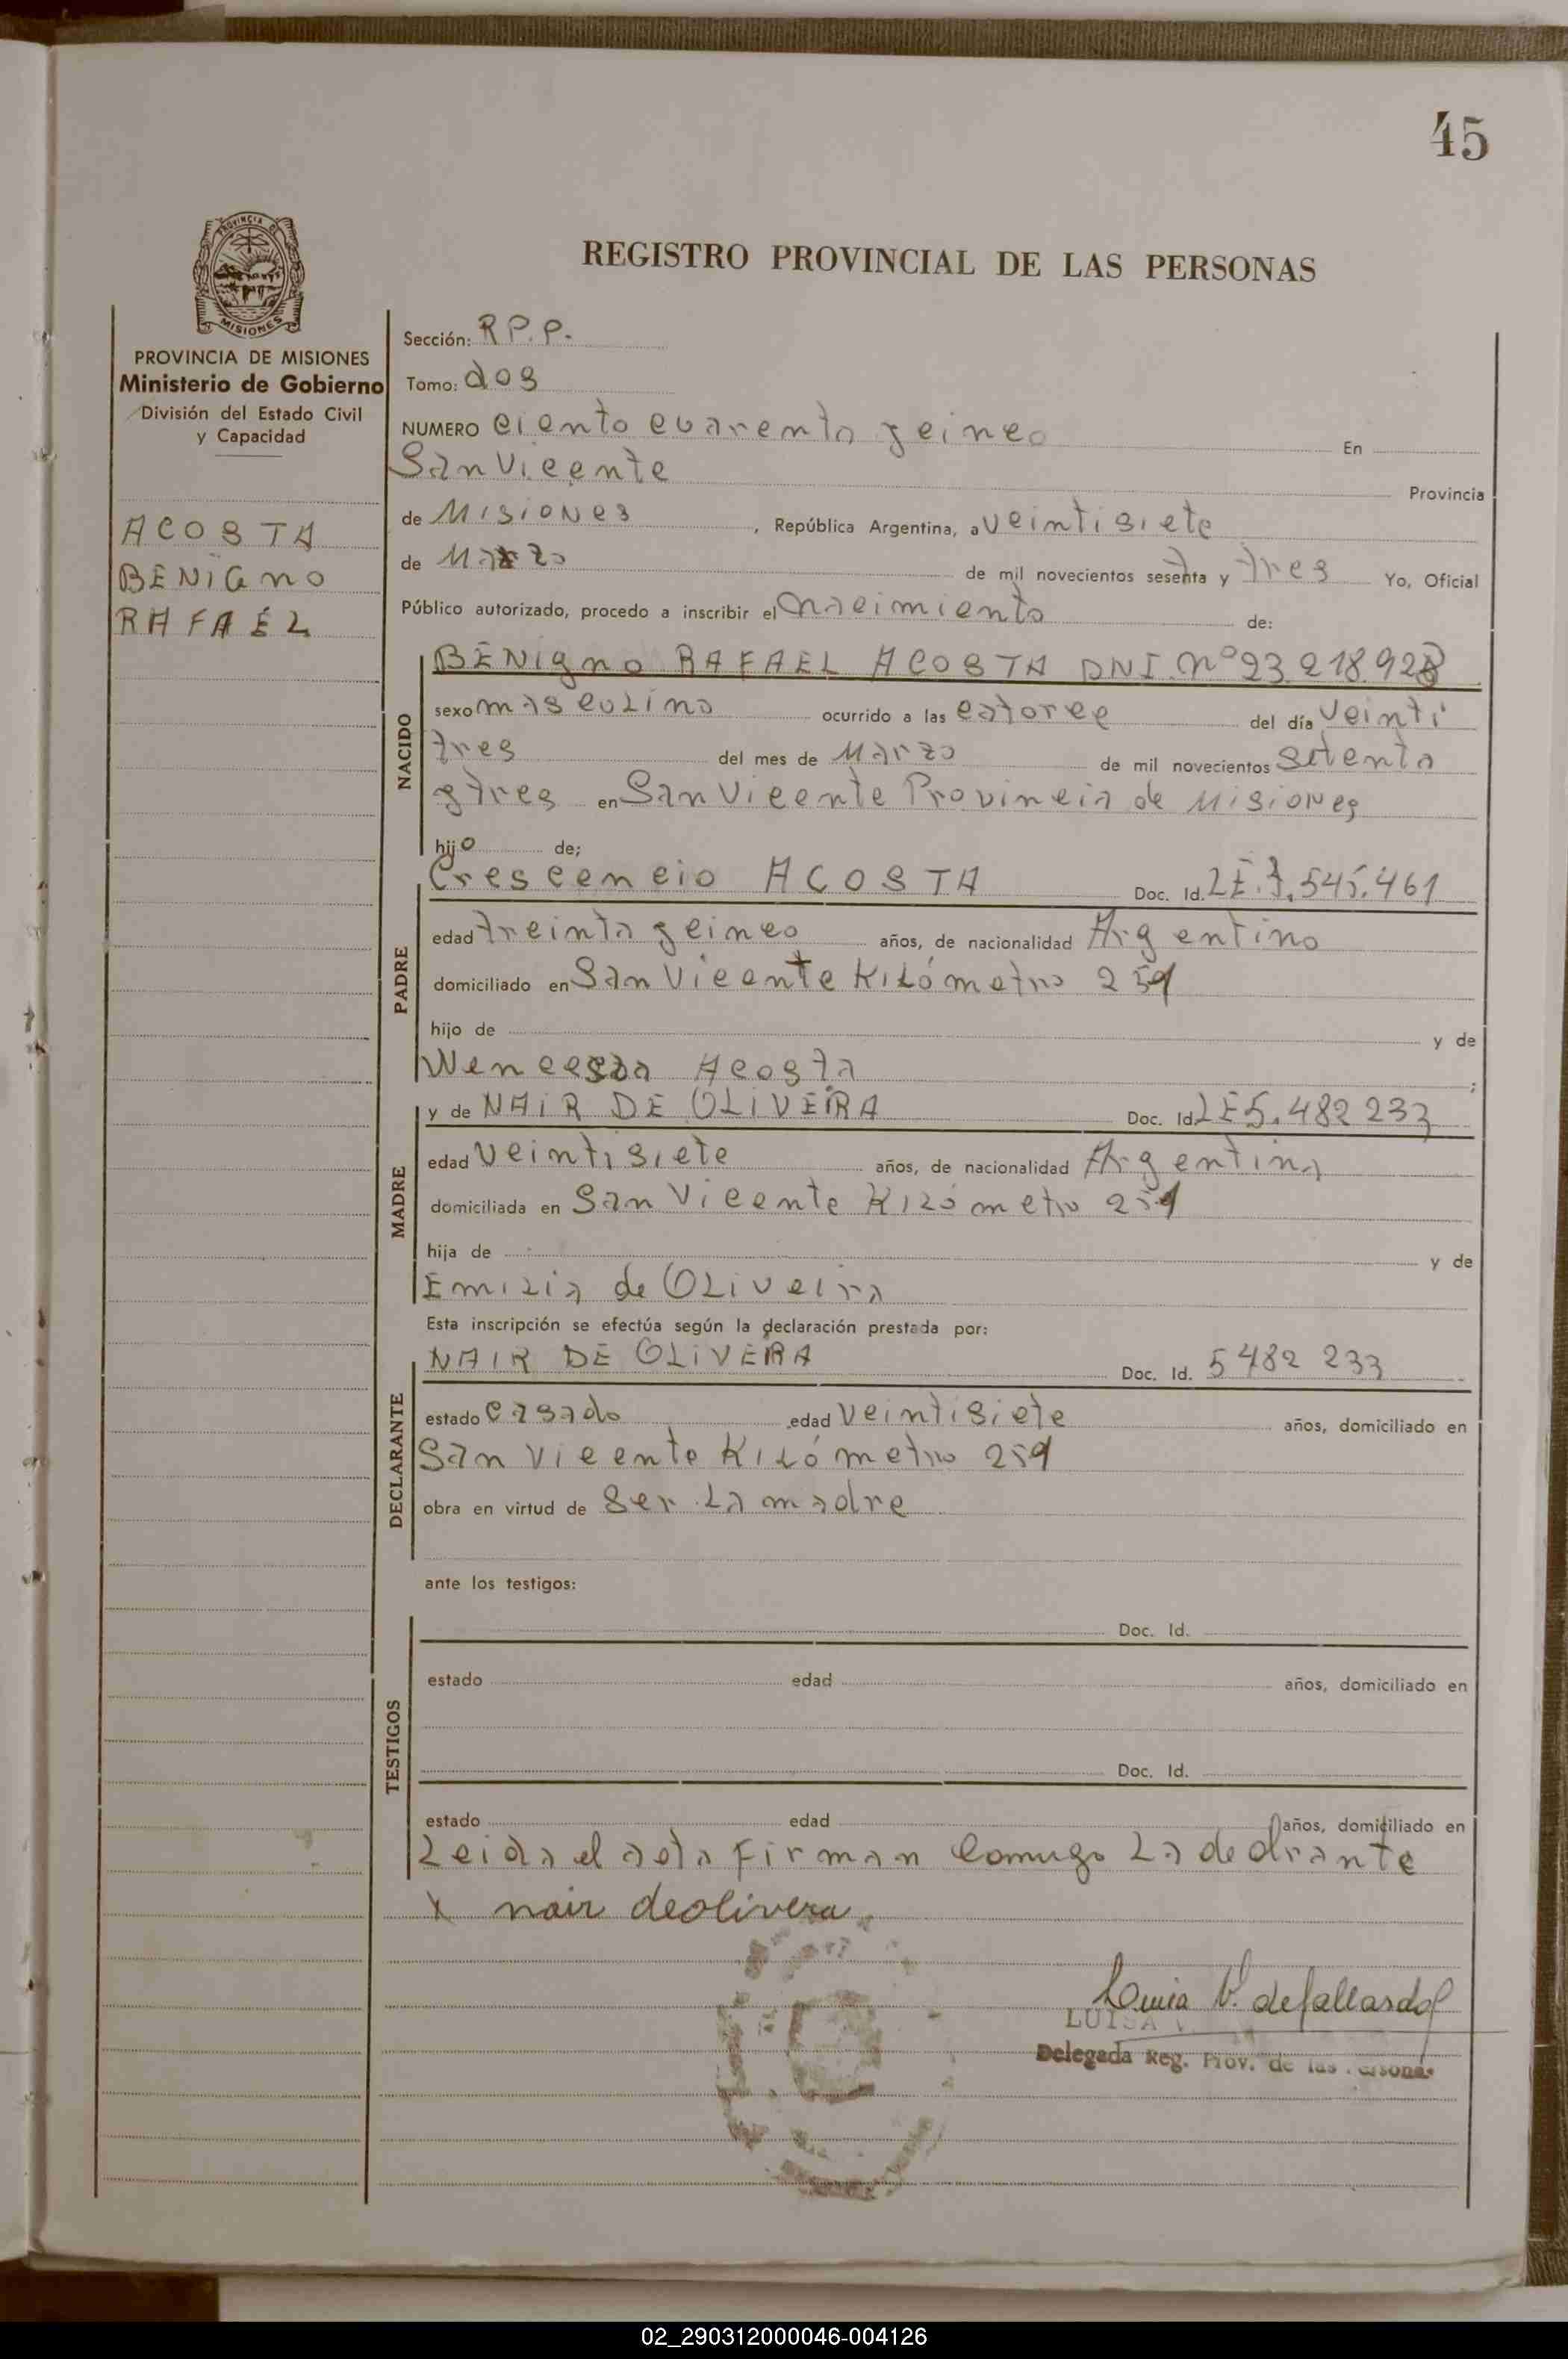 45
REGISTRO PROVINCIAL DE LAS PERSONAS
PROVINCIA DE MISIONES
Ministerio de Gobierno
División del Estado Civil
y Capacidad
ACOSTA
BENIGNO
RAFAEL
Sección: R.P.P.
Tomo: dos
NUMERO ciento cuarenta y cinco En
San Vicente Provincia
de Misiones, República Argentina, a veintisiete
de Marzo de mil novecientos sesenta y tres Yo, Oficial
Público autorizado, procedo a inscribir el nacimiento de:
NACIDO
BENigno RAFAEL ACOSTA DNI nº 23.218.928
sexo masculino ocurrido a las catorce del día veinti
tres del mes de Marzo de mil novecientos setenta
y tres en San Vicente Provincia de Misiones
hijo de;
PADRE
Crescencio ACOSTA Doc. Id. LE.7.545.461
edad treinta y cinco años, de nacionalidad Argentino
domiciliado en San Vicente Kilómetro 259
hijo de y de
Acosta ;
MADRE
y de NAIR DE OLIVEIRA Doc. Id. LE5.482 233
edad veintisiete años, de nacionalidad Argentina
domiciliada en San Vicente Kilómetro 259
hija de y de
Emilia de Oliveira
Esta inscripción se efectúa según la declaración prestada por:
DECLARANTE
NAIR DE OLIVEIRA Doc. Id. 5 482 233
estado casado edad veintisiete años, domiciliado en
San Vicente Kilómetro 259
obra en virtud de Ser La madre
ante los testigos:
TESTIGOS
Doc. Id.
estado edad años, domiciliado en
Doc. Id.
estado edad años, domiciliado en
Leida el acta Firman Comugo La declrante
x nair deolivera
Luisa V. de Gallardo
LUISA V.
Delegada Reg. Prov. de las Persona
02_290312000046-004126